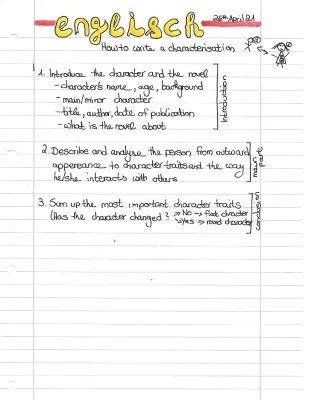 englisch
26th April 21
How to write a characterisation
1. Introduce the character and the novel
- character's name, age, background
- main/minor character
- title, author, date of publication
- what is the novel about
Introduction
2. Describe and analyse the person from outward
appereance to character traits and the way
he/she interacts with others
main part
3. Sum up the most important character traits
(Has the character changed? → No → flat character
→ Yes → round character
conclusion